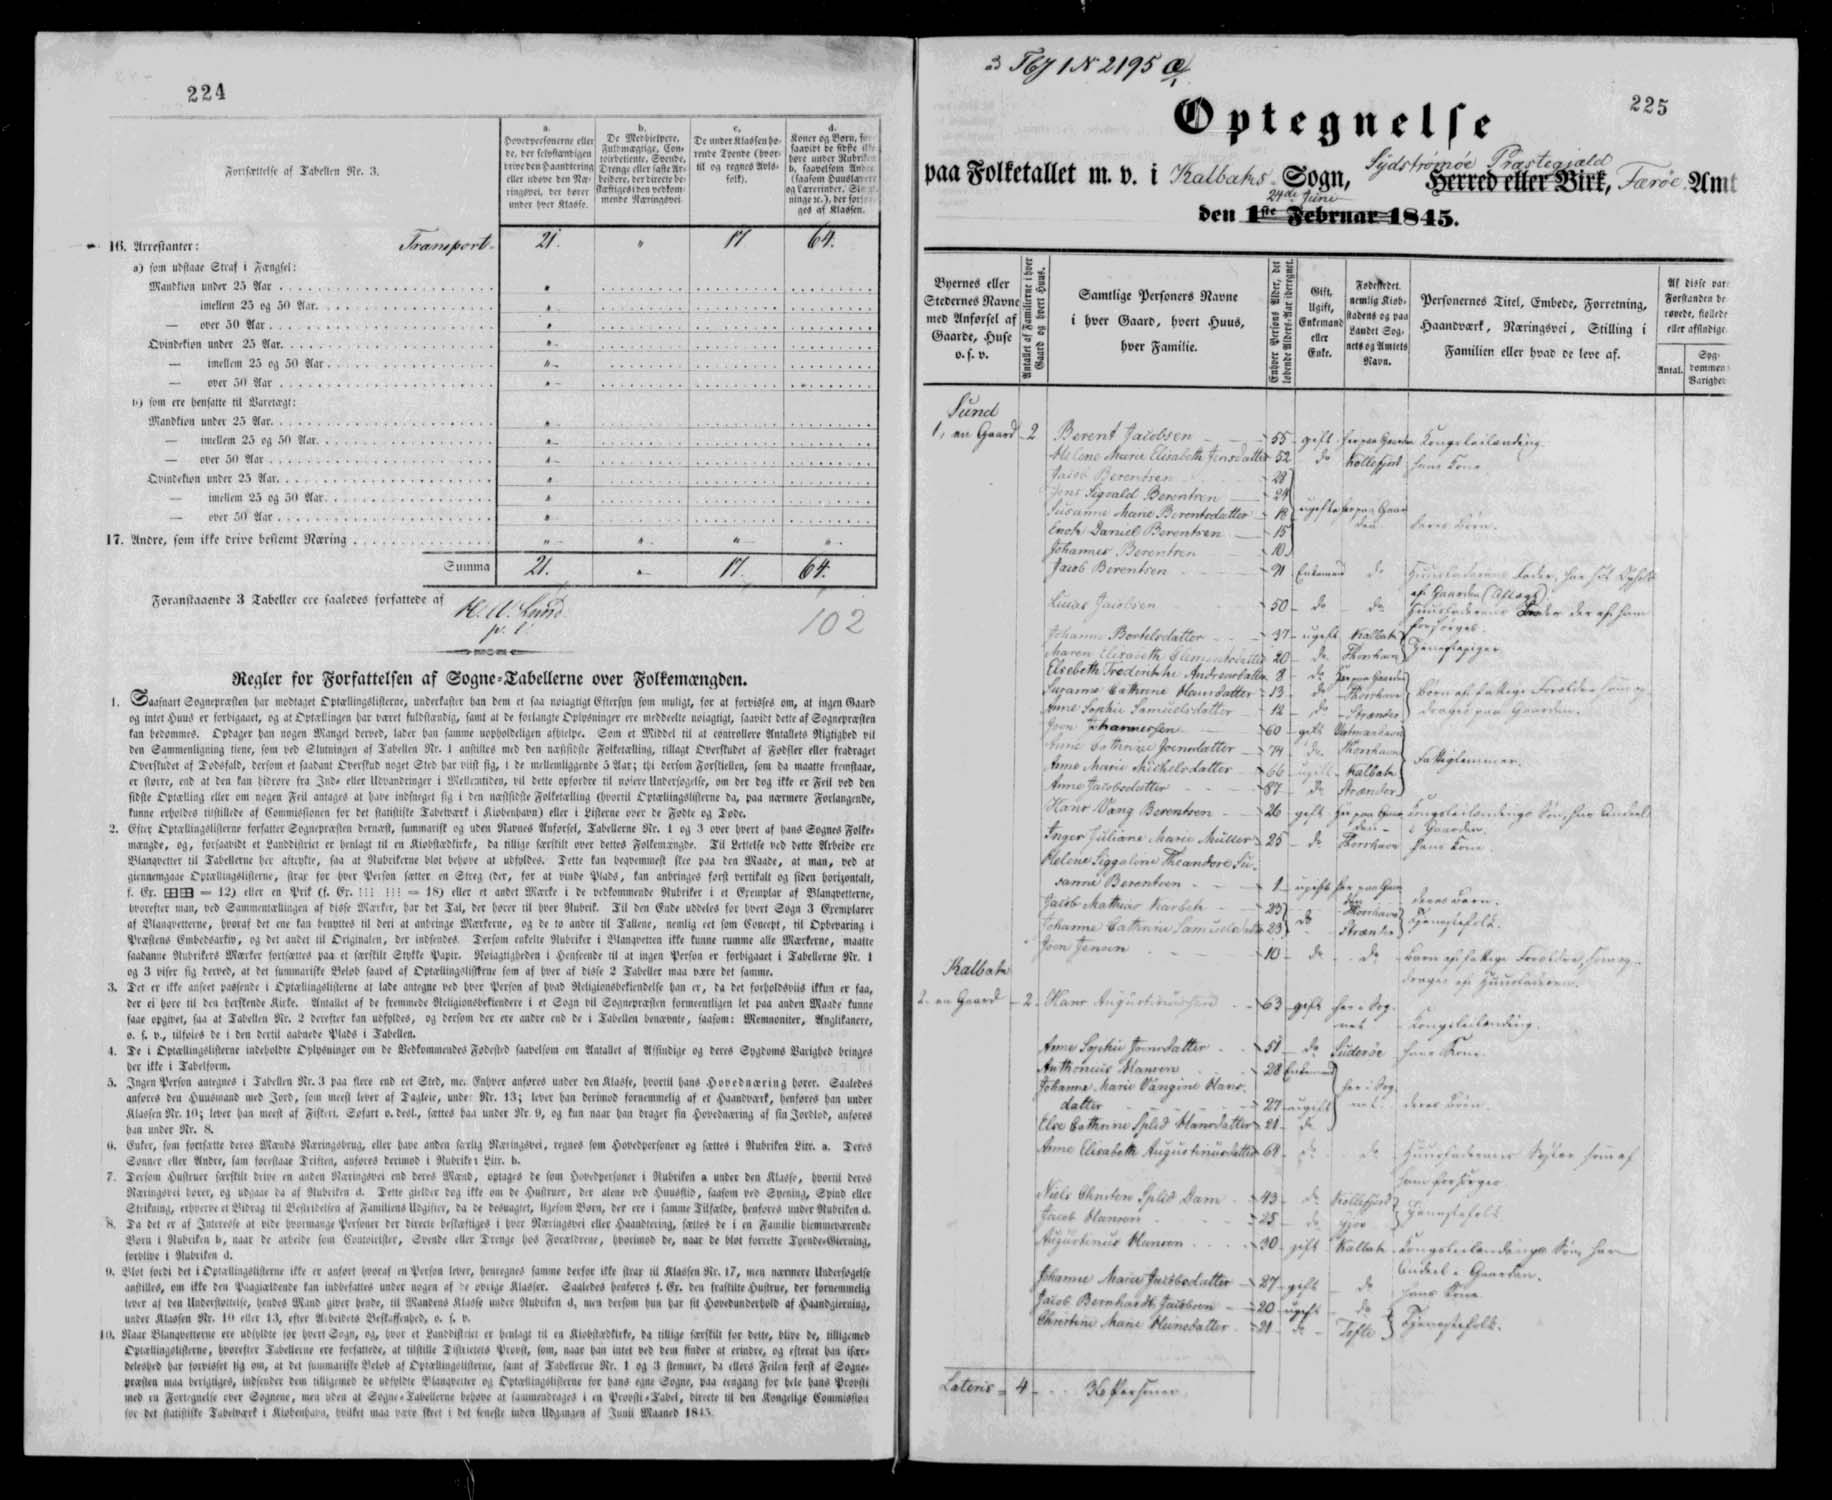 224
Fortsættelse af Tabellen Nr. 3.
a.
Hovedpersonerne eller
de, der selvstændigen
drive den Haandtering
eller udøve den Næ-
ringsvei, der hører
under hver Klasse.
b.
De Medhjelpere,
Fuldmægtige, Con-
toirbetjente, Svende,
Drenge eller faste Ar-
beidere, der directe be-
skæftiges i den vedkom-
mende Næringsvei.
c.
De under Klassen hø-
rende Tyende (hvor-
til og regnes Avls-
folk).
d.
Koner og Børn, for-
saavidt de sidste ikke
høre under Rubriken
b, saavelsom Andre
(saasom Huuslærere
og Lærerinder, Slægt-
ninge ec.), der forsør-
ges af Klassen.
16. Arrestanter: Transport 21. " 17 64.
a) som udstaae Straf i Fængsel:
Mandkiøn under 25 Aar
imellem 25 og 50 Aar.
— over 50 Aar
Qvindekiøn under 25 Aar.
— imellem 25 og 50 Aar
— over 50 Aar
b) som ere hensatte til Varetægt:
Mandkiøn under 25 Aar.
— imellem 25 og 50 Aar.
— over 50 Aar
Qvindekiøn under 25 Aar.
— imellem 25 og 50 Aar.
— over 50 Aar
17. Andre, som ikke drive bestemt Næring " " " "
Summa 21. " 17. 64.
Foranstaaende 3 Tabeller ere saaledes forfattede af
102
Regler for Forfattelsen af Sogne-Tabellerne over Folkemængden.
1. Saasnart Sognepræsten har modtaget Optællingslisterne, underkaster han dem et saa nøiagtigt Eftersyn som muligt, for at forvisses om, at ingen Gaard
og intet Huus er forbigaaet, og at Optællingen har været fuldstændig, samt at de forlangte Oplysninger ere meddeelte nøiagtigt, saavidt dette af Sognepræsten
kan bedømmes. Opdager han nogen Mangel derved, lader han samme uopholdeligen afhielpe. Som et Middel til at controllere Antallets Rigtighed vil
den Sammenligning tiene, som ved Slutningen af Tabellen Nr. 1 anstilles med den næstsidste Folketælling, tillagt Overskudet af Fødsler eller fradraget
Overskudet af Dødsfald, dersom et saadant Overskud noget Sted har viist sig, i de mellemliggende 5 Aar; thi dersom Forskiellen, som da maatte fremstaae,
er større, end at den kan hidrøre fra Ind- eller Udvandringer i Mellemtiden, vil dette opfordre til nøiere Undersøgelse, om der dog ikke er Feil ved den
sidste Optælling eller om nogen Feil antages at have indsneget sig i den næstsidste Folketælling (hvortil Optællingslisterne da, paa nærmere Forlangende,
kunne erholdes tilstillede af Commissionen for det statistiske Tabelværk i Kiøbenhavn) eller i Listerne over de Fødte og Døde.
2. Efter Optællingslisterne forfatter Sognepræsten dernæst, summarisk og uden Navnes Anførsel, Tabellerne Nr. 1 og 3 over hvert af hans Sognes Folke-
mængde, og, forsaavidt et Landdistrict er henlagt til en Kiøbstædkirke, da tillige særskilt over dettes Folkemængde. Til Lettelse ved dette Arbeide ere
Blanqvetter til Tabellerne her aftrykte, saa at Rubrikerne blot behøve at udfyldes. Dette kan beqvemmest skee paa den Maade, at man, ved at
giennemgaae Optællingslisterne, strax for hver Person sætter en Streg (der, for at vinde Plads, kan anbringes først vertikalt og siden horizontalt,
f. Ex. ⊞⊞ = 12) eller en Prik (f. Ex. ⁝⁝⁝ ⁝⁝⁝ = 18) eller et andet Mærke i de vedkommende Rubriker i et Exemplar af Blanqvetterne,
hvorefter man, ved Sammentællingen af disse Mærker, har det Tal, der hører til hver Rubrik. Til den Ende uddeles for hvert Sogn 3 Exemplarer
af Blanqvetterne, hvoraf det ene kan benyttes til deri at anbringe Mærkerne, og de to andre til Tallene, nemlig eet som Concept, til Opbevaring i
Præstens Embedsarkiv, og det andet til Originalen, der indsendes. Dersom enkelte Rubriker i Blanqvetten ikke kunne rumme alle Mærkerne, maatte
saadanne Rubrikers Mærker fortsættes paa et særskilt Stykke Papir. Nøiagtigheden i Henseende til at ingen Person er forbigaaet i Tabellerne Nr. 1
og 3 viser sig derved, at det summariske Beløb saavel af Optællingslisterne som af hver af disse 2 Tabeller maa være det samme.
3. Det er ikke anseet passende i Optællingslisterne at lade antegne ved hver Person af hvad Religionsbekiendelse han er, da det forholdsviis ikkun er faa,
der ei høre til den herskende Kirke. Antallet af de fremmede Religionsbekiendere i et Sogn vil Sognepræsten formeentligen let paa anden Maade kunne
faae opgivet, saa at Tabellen Nr. 2 derefter kan udfyldes, og dersom der ere andre end de i Tabellen benævnte, saasom: Memnoniter, Anglikanere,
o. s. v., tilføies de i den dertil aabnede Plads i Tabellen.
4. De i Optællingslisterne indeholdte Oplysninger om de Vedkommendes Fødested saavelsom om Antallet af Afsindige og deres Sygdoms Varighed bringes
her ikke i Tabelform.
5. Ingen Person antegnes i Tabellen Nr. 3 paa flere end eet Sted, men Enhver anføres under den Klasse, hvortil hans Hovednæring hører. Saaledes
anføres den Huusmand med Jord, som meest lever af Dagleie, under Nr. 13; lever han derimod fornemmelig af et Haandværk, henføres han under
Klassen Nr. 10; lever han meest af Fiskeri, Søfart o. desl., sættes han under Nr. 9, og kun naar han drager sin Hovednæring af sin Jordlod, anføres
han under Nr. 8.
6. Enker, som fortsætte deres Mænds Næringsbrug, eller have anden særlig Næringsvei, regnes som Hovedpersoner og sættes i Rubriken Litr. a. Deres
Sønner eller Andre, som forestaae Driften, anføres derimod i Rubriken Litr. b.
7. Dersom Hustruer særskilt drive en anden Næringsvei end deres Mænd, optages de som Hovedpersoner i Rubriken a under den Klasse, hvortil deres
Næringsvei hører, og udgaae da af Rubriken d. Dette gielder dog ikke om de Hustruer, der alene ved Huusflid, saasom ved Syening, Spind eller
Strikning, erhverve et Bidrag til Bestridelsen af Familiens Udgifter, da de desuagtet, ligesom Børn, der ere i samme Tilfælde, henføres under Rubriken d.
8. Da det er af Interesse at vide hvormange Personer der directe beskæftiges i hver Næringsvei eller Haandtering, sættes de i en Familie hiemmeværende
Børn i Rubriken b, naar de arbeide som Contoirister, Svende eller Drenge hos Forældrene, hvorimod de, naar de blot forrette Tyende-Gierning,
forblive i Rubriken d.
9. Blot fordi det i Optællingslisterne ikke er anført hvoraf en Person lever, henregnes samme derfor ikke strax til Klassen Nr. 17, men nærmere Undersøgelse
anstilles, om ikke den Paagiældende kan indbefattes under nogen af de øvrige Klasser. Saaledes henføres f. Ex. den fraskilte Hustrue, der fornemmelig
lever af den Understøttelse, hendes Mand giver hende, til Mandens Klasse under Rubriken d, men dersom hun har sit Hovedunderhold af Haandgierning,
under Klassen Nr. 10 eller 13, efter Arbeidets Beskaffenhed, o. s. v.
10. Naar Blanqvetterne ere udfyldte for hvert Sogn, og, hvor et Landdistrict er henlagt til en Kiøbstædkirke, da tillige særskilt for dette, blive de, tilligemed
Optællingslisterne, hvorefter Tabellerne ere forfattede, at tilstille Districtets Provst, som, naar han intet ved dem finder at erindre, og efterat han især-
deleshed har forvisset sig om, at det summariske Beløb af Optællingslisterne, samt af Tabellerne Nr. 1 og 3 stemmer, da ellers Feilen først af Sogne-
præsten maa berigtiges, indsender dem tilligemed de udfyldte Blanqvetter og Optællingslisterne for hans egne Sogne, paa eengang for hele hans Provsti
med en Fortegnelse over Sognene, men uden at Sogne-Tabellerne behøve at sammendrages i en Provsti-Tabel, directe til den Kongelige Commission
for det statistiske Tabelværk i Kiøbenhavn, hvilket maa være skeet i det seneste inden Udgangen af Junii Maaned 1845.
1 N 2195
225
Optegnelse
paa Folketallet m. v. i Kalbaks Sogn, Sydstrømøe Præstegjæld Herred eller Birk, Færøe Amt
24de Juni
den 1ste Februar 1845.
Byernes eller
Stedernes Navne
med Anførsel af
Gaarde, Huse
o. s. v.
Antallet af Familierne i hver
Gaard og hvert Huus.
Samtlige Personers Navne
i hver Gaard, hvert Huus,
hver Familie.
Enhver Persons Alder, det
løbende Alders-Aar iberegnet.
Gift,
Ugift,
Enkemand
eller
Enke.
Fødestedet,
nemlig Kiøb-
stadens og paa
Landet Sog-
nets og Amtets
Navn.
Personernes Titel, Embede, Forretning,
Haandværk, Næringsvei, Stilling i
Familien eller hvad de leve af.
Af disse vare
Forstanden be-
røvede, fiollede
eller afsindige.
Antal.
Syg-
dommens
Varighed
Sund
1, en Gaard 2 Berent Jacobsen 55 gift her paa Gaarden Kongsleilænding.
Helene Marie Elisabeth Jensdatter 52 do Kollefjord hans Kone
Jacob Berentsen 28
Jens Sigvald Berentsen 24
Susanne Marie Berentsdatter 18 ugifte her paa Gaar
den deres Børn.
Enok Daniel Berentsen 15
Johannes Berentsen 10
Jacob Berentsen 91 Enkemand do Huusfaderens Fader, har sit Ophold
af Gaarden (Aftægt)
Lucas Jacobsen 50 do do Huusfaderens Broder der af ham
forsørges.
Johanne Bertelsdatter 37 ugift Kalbak
Maren Elisabeth Clementsdatter 20 do Thorshavn Tjenestepiger.
Elsebeth Frederikke Andreasdatter 8 do her paa Gaarden
Susanne Cathrine Hansdatter 13 do Thorshavn Børn af fattige Forældre som op
Anne Sophie Samuelsdatter 12 do Strænder drages paa Gaarden.
Joen Johannessen 60 gift Vestmanhavn
Anne Cathrine Joensdatter 74 do Thorshavn
Fattiglemmer.
Anne Marie Michelsdatter 66 ugift Kalbak
Anne Jacobsdatter 87 do Strænder
Hans Vang Berentsen 26 gift her paa Gaar
den Kongsleilændings Søn, har Andeel
i Gaarden.
Inger Juliane Marie Müller 25 do Thorshavn hans Kone
Helene Siggaline Theandore Su-
sanne Berentsen 1 ugift her paa Gaar
den deres Barn.
Jacob Mathias Karbek 23 do Thorshavn
Johanne Cathrine Samuelsdatter 23 Strænder Tjenestefolk.
Joen Jensen 10 do do Barn af fattige Forældre, som op-
drages af Huusfaderen.
Kalbak
2. en Gaard 2 Hans Augustinussen 63 gift her i Sog-
net Kongsleilænding.
Anne Sophie Joensdatter 51 do Suderøe hans Kone.
Anthonius Hansen 28 Enkemand
Johanne Marie Vangine Hans-
datter 27 ugift her i Sog-
net. deres Børn.
Else Cathrine Splid Hansdatter 21 do
Anne Elisabeth Augustinusdatter 61 do do Huusfaderens Søster som af
ham forsørges.
Niels Christen Splid Dam 43 do Kollefjord
Jacob Hansen 25 do Tjenestefolk
Augustinus Hansen 30 gift Kalbak Kongsleilændings Søn, har
Andeel i Gaarden.
Johanne Marie Jacobsdatter 27 gift do hans Kone
Jacob Bernhardt Jacobsen 20 ugift do
Christine Marie Heinesdatter 21 do Tofte Tjenestefolk.
Lateris = 4 36 Personer